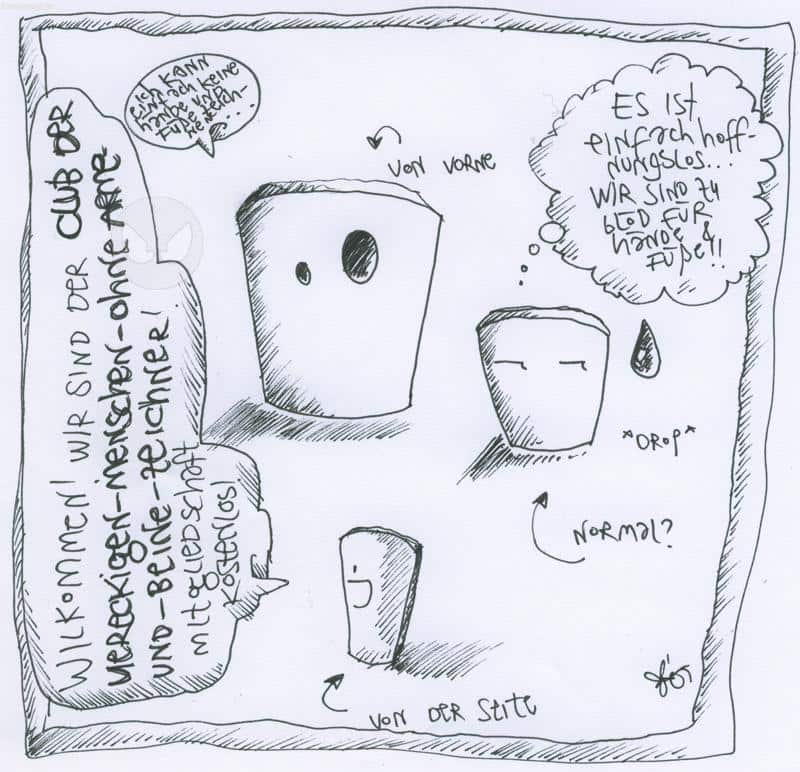 ich kann
einfach keine
Hände und
Füße
von vorne
Es ist
einfach hoff-
nungslos...
Wir sind zu
blöd für
Hände &
Füße!!
Wilkommen! Wir sind der Club der
viereckigen-Menschen-ohne-Arme-
und-Beine-Zeichner!
Mitgliedschaft
kostenlos!
*Drop*
Normal?
von der Seite